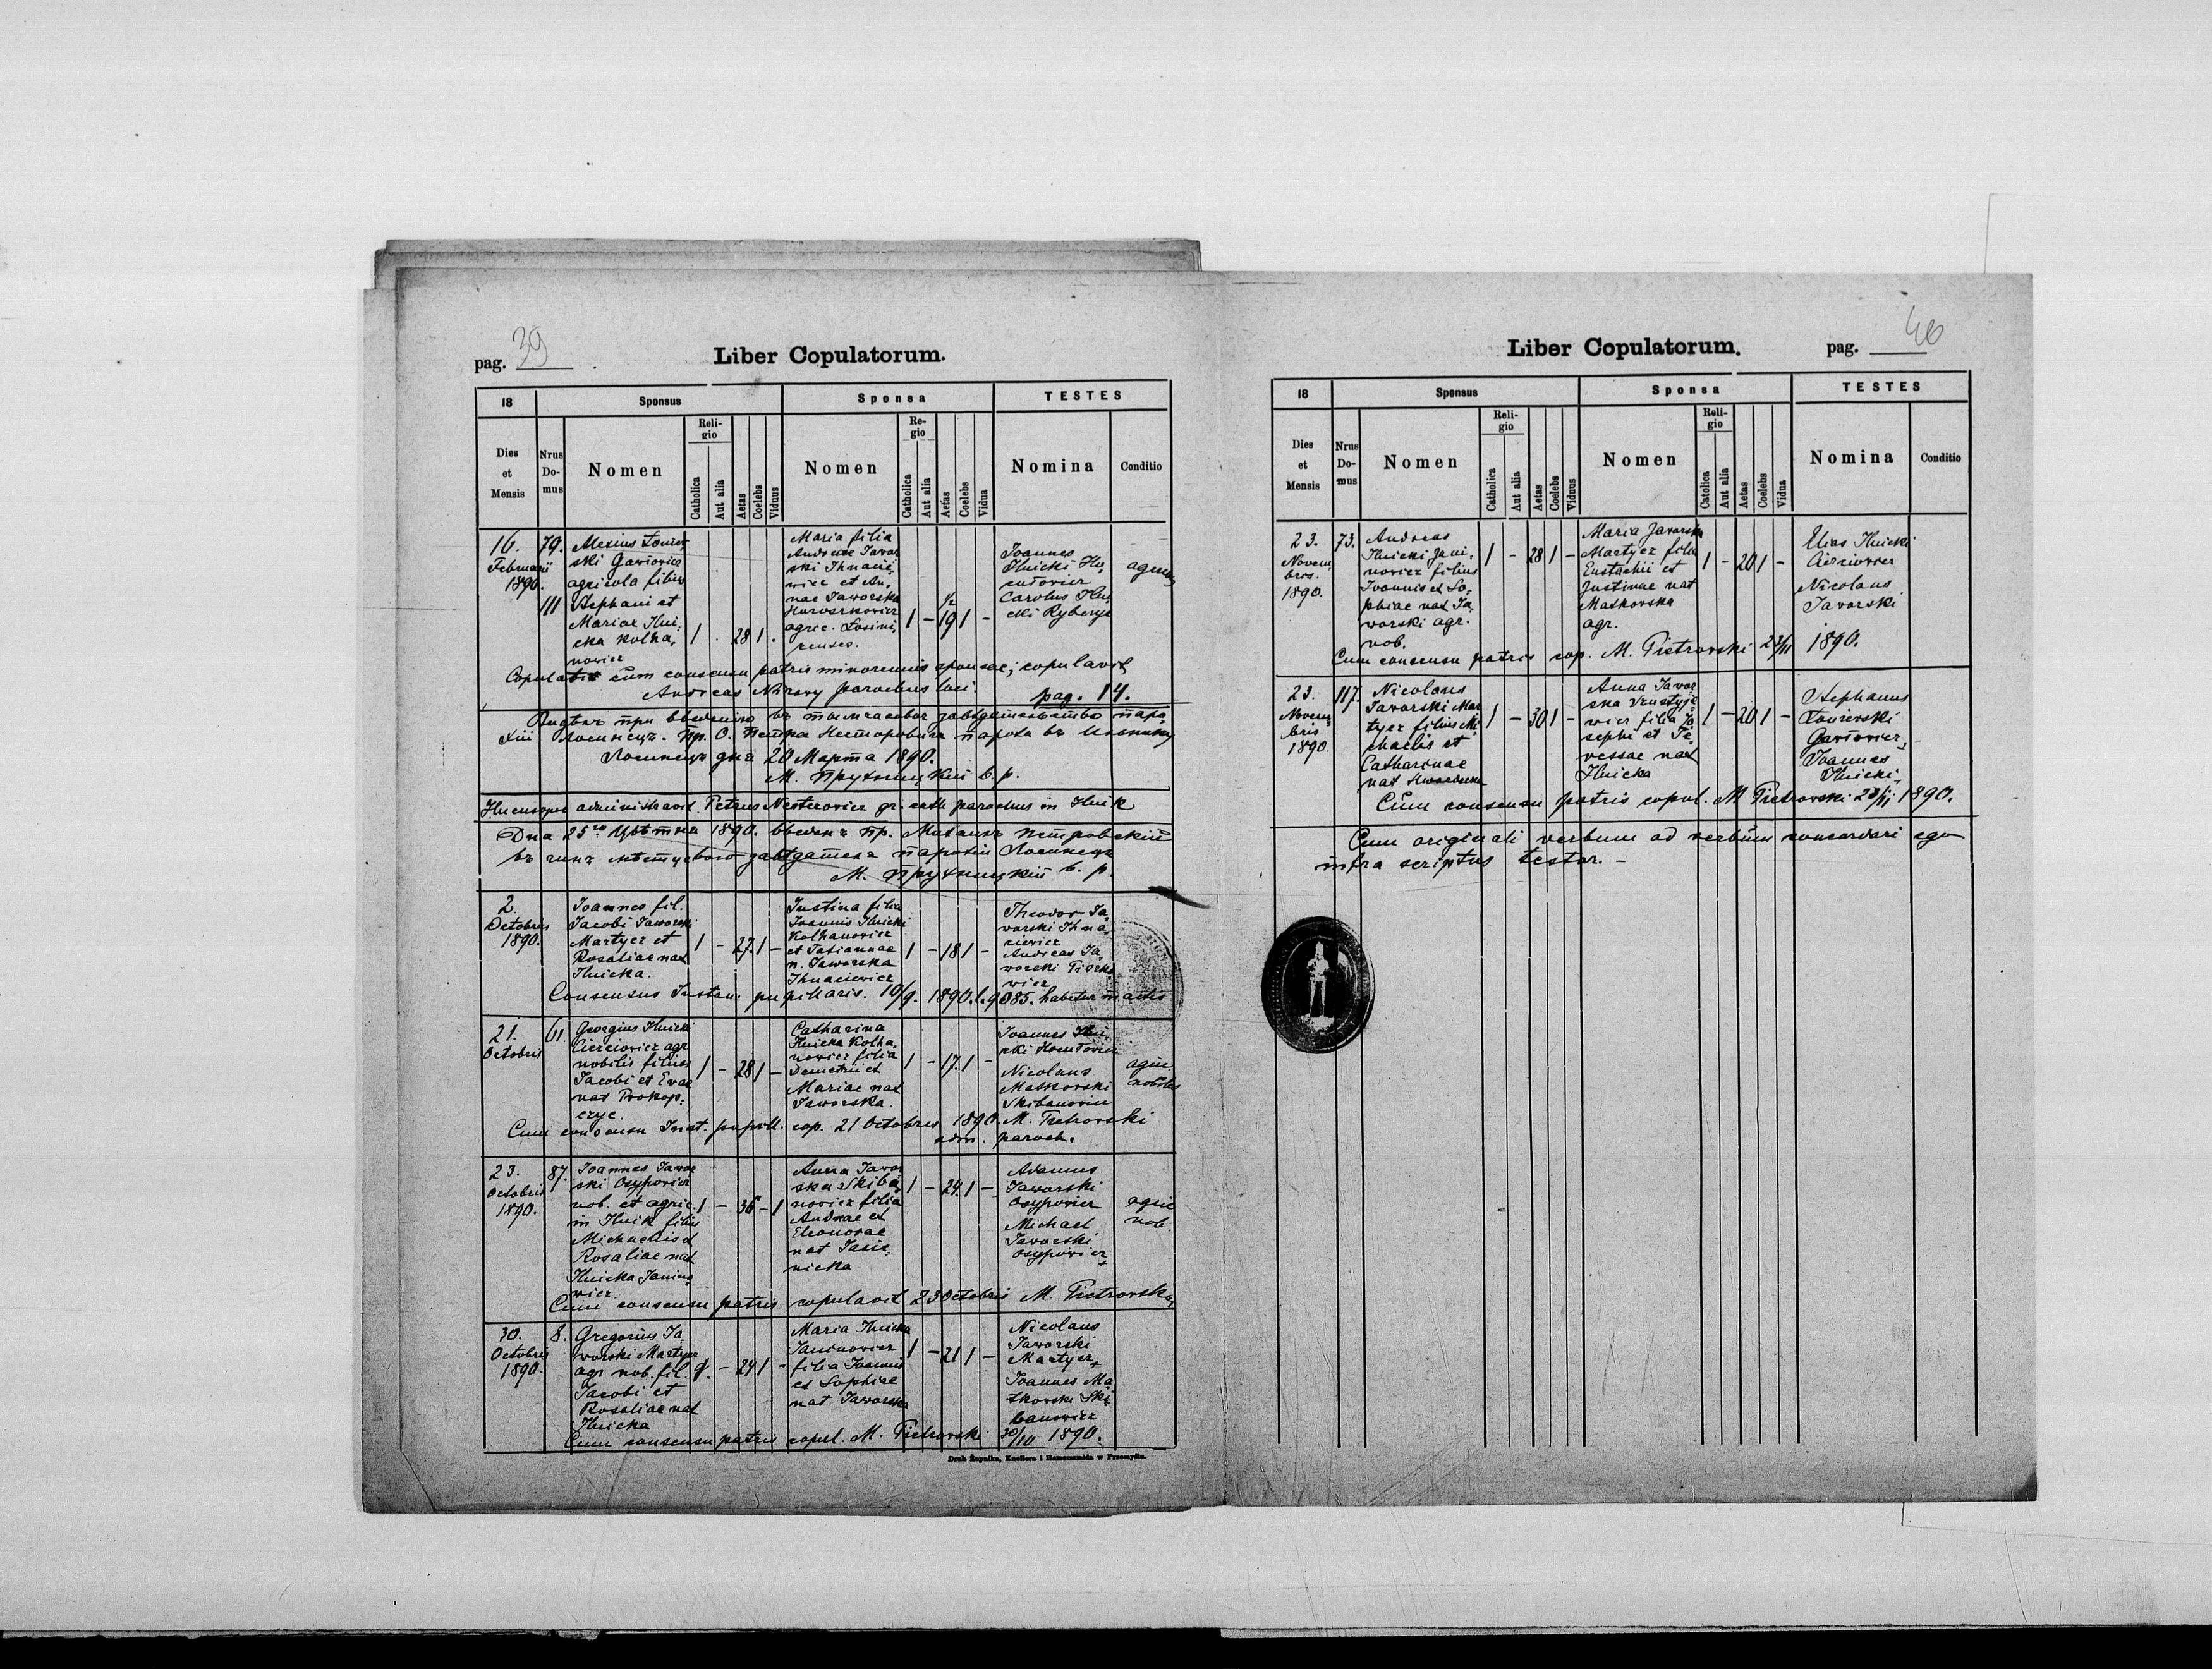 pag. 39
Liber Copulatorum.
18
Sponsus
Sponsa
TESTES
Dies et Mensis
Nrus Domus
Nomen
Religio
Catholica
Aut alia
Aetas
Coelebs
Viduus
Nomen
Religio
Catholica
Aut alia
Aetas
Coelebs
Vidua
Nomina
Conditio
16.
Februarii
1890.
79.
111
agricola filius
Stephani et
Mariae Ilni-
cka Kolha-
nowicz
1 . 28 1 .
Maria filia
Andreae Jawor
ski Ihnacie-
wicz et An-
nae Jaworska
agric.
1 - 19 1/2 1 -
Joannes
Ilnicki
Carolus Ilni
cki
cum consensu patris minorennis sponsae, copulavit
Andreas parochus loci.
pag. 14.
20 Марта 1890.
М. Прухницкій в. р.
administravit Petrus Nesterovicz gr. cath. parochus in Ilnik
Дна 25го 1890. введенъ пр. Михаилъ Петровскій
М. Прухницкій в. р.
2.
Octobris
1890.
Joannes fil.
Jacobi Jaworski
Martycz et
Rosaliae nat
Ilnicka.
1 - 27. 1 -
Justina filia
Joannis Ilnicki
Kolhanowicz
et Tatiannae
n. Jaworska
Ihnaciewicz
1 - 18 1 -
Theodor Ja-
worski Ihna-
ciewicz
Andreas Ja-
worski
wicz
Consensus Instan. pupillaris. 10/9. 1890. l. 9085. habetur in actis
21.
Octobris
61.
Georgius Ilnicki
Cierciowicz agr
nobilis filius
Jacobi et Evae
nat Prokop-
czyc.
1 - 28 1 -
Catharina
Ilnicka Kolha-
nowicz filia
Demetrii et
Mariae nat
Jaworska.
1 - 17. 1 -
Joannes Ilni-
cki
Nicolaus
Matkowski
Skibanowicz
agric
nobiles
Cum consensu Inst. pupill. cop. 21 Octobris 1890. M. Pietrovski
adm. paroch.
23.
Octobris
1890.
87.
Joannes Jawor
ski Osypovicz
nob. et agric.
in Ilnik filius
Michaelis et
Rosaliae nat
Ilnicka Janino-
wicz.
1 - 36 - 1
Anna Jawor
ska Skiba-
nowicz filia
Andreae et
Eleonorae
nat Jasie-
nicka
1 - 24. 1 -
Adamus
Jaworski
Osypovicz
Michael
Jaworski
Osypovicz
agric
nob.
Cum consensu patris copulavit 23 Octobris M. Pietrovski
30.
Octobris
1890.
8.
Gregorius Ja-
worski Martycz
agr nob. fil.
Jacobi et
Rosaliae nat
Ilnicka
1. - 24 1 -
Maria Ilnicka
Janinowicz
filia Joannis
et Sophiae
nat Jaworska
1 - 21 1 -
Nicolaus
Jaworski
Martycz
Joannes Ma-
tkowski Ski-
banowicz
Cum consensu patris copul. M. Pietrovski 30/10 1890.
Druk Żupnika, Knollera i Hamerszmida w Przemyślu.
Liber Copulatorum.
pag. 40
18
Sponsus
Sponsa
TESTES
Dies et Mensis
Nrus Domus
Nomen
Religio
Catholica
Aut alia
Aetas
Coelebs
Viduus
Nomen
Religio
Catolica
Aut alia
Aetas
Coelebs
Vidua
Nomina
Conditio
23.
Novem
bris.
1890.
73.
Andreas
Ilnicki Jani-
nowicz filius
Joannis et So-
phiae nat Ja-
worski agr.
nob.
1 - 28 1 -
Maria Javorska
Martycz filia
Eustachii et
Justinae nat
Matkovska
agr.
1 - 20 1 -
Elias Ilnicki
Cierciowicz
Nicolaus
Javorski
Cum consensu patris cop. M. Pietrovski 23/11 1890.
23.
Novem
bris
1890.
117.
Nicolaus
Javorski Mar
tycz filius Mi
chaelis et
Catharinae
nat
1 - 30 1 -
Anna Jawor
ska
wicz filia Jo-
sephi et Te-
ressae nat
Ilnicka
1 - 20 1 -
Stephanus
Joannes
Ilnicki
Cum consensu patris copul. M Pietrovski 23/11 1890.
Cum originali verbum ad verbum concordari ego
infra scriptus testor. -